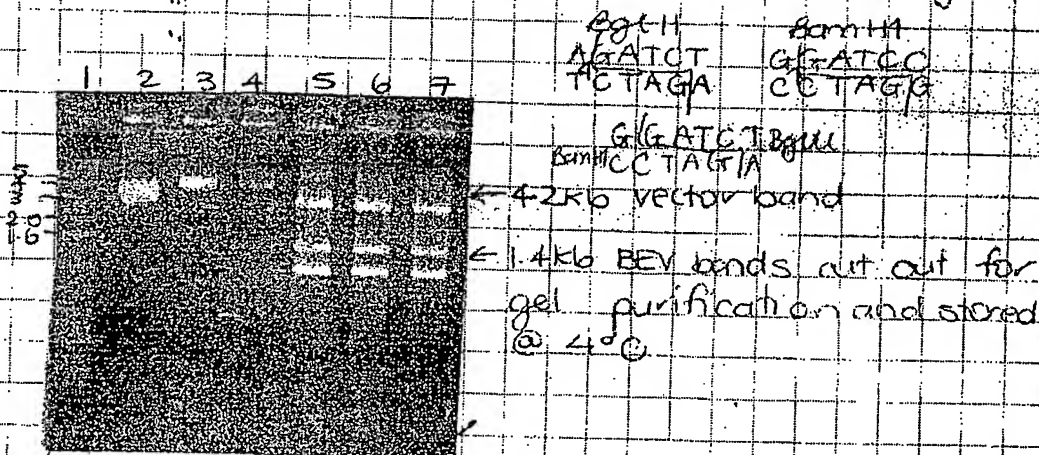 BglII BamHI
AGATCT GGATCC
TCTAG/A CCTAG/G
G/GATCT BglII
BamHI CCTAG/A
1 2 3 4 5 6 7
← 4.2kb vector band
← 1.4kb BEV bands cut out for
gel purification and stored
@ 4°C